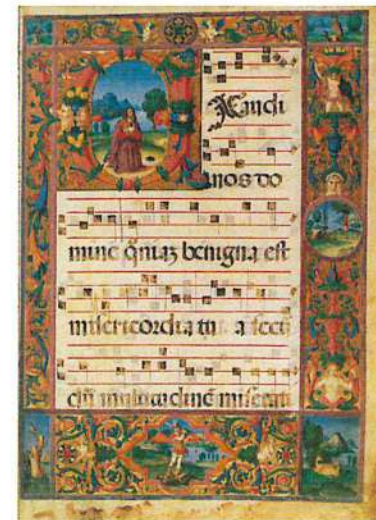 Xaudi
nos do
mine q̄niaz benigna est
misericordia tu a secū
dū multitudinē miserati